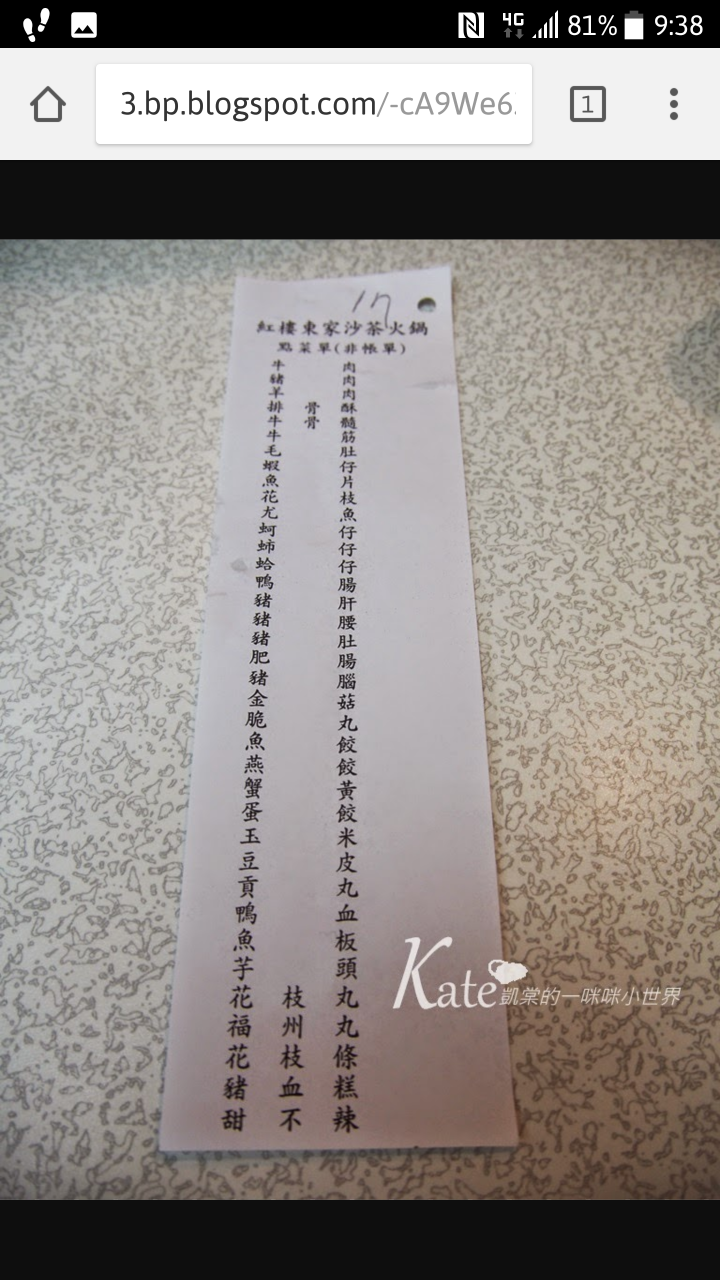 81% 9:38
3.bp.blogspot.com/-cA9We6
1
17
紅樓東家沙茶火鍋
點菜單(非帳單)
牛肉
豬肉
羊肉
排骨酥
牛骨髓
牛筋
毛肚
蝦仔
魚片
花枝
尤魚
蚵仔
仔
蛤仔
鴨腸
豬肝
豬腰
豬肚
肥腸
豬腦
金菇
脆丸
魚餃
燕餃
蟹黃
蛋餃
玉米
豆皮
貢丸
鴨血
魚板
芋頭
花枝丸
福州丸
花枝條
豬血糕
甜不辣
Kate 凱棠的一咪咪小世界